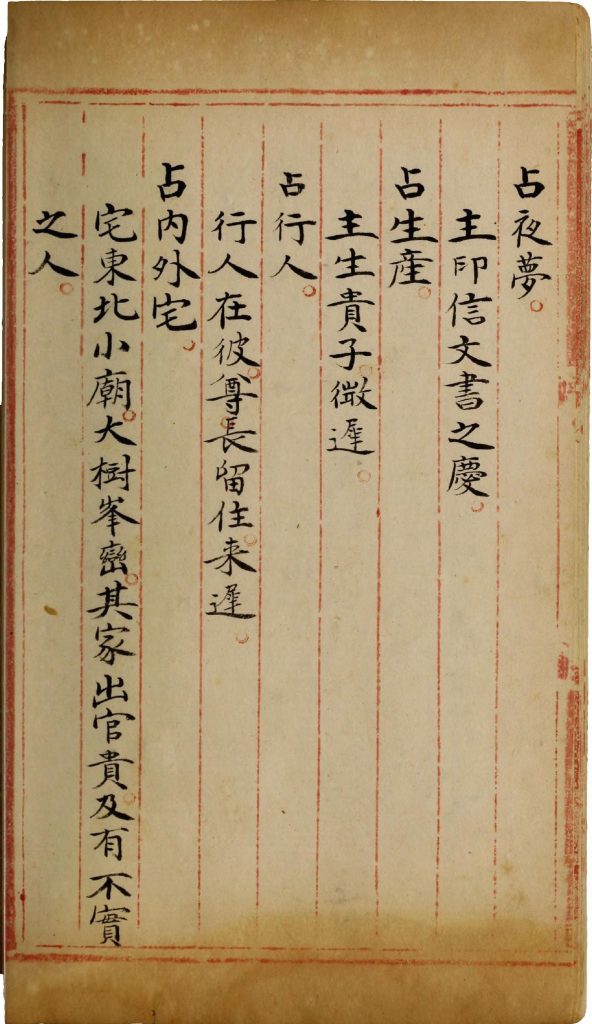 占夜夢。
主印信文書之慶。
占生產。
主生貴子。微遲。
占行人。
行人在彼。尊長留住。来遲。
占内外宅。
宅東北小廟。大樹峯巒。其家出官貴。及有不實
之人。